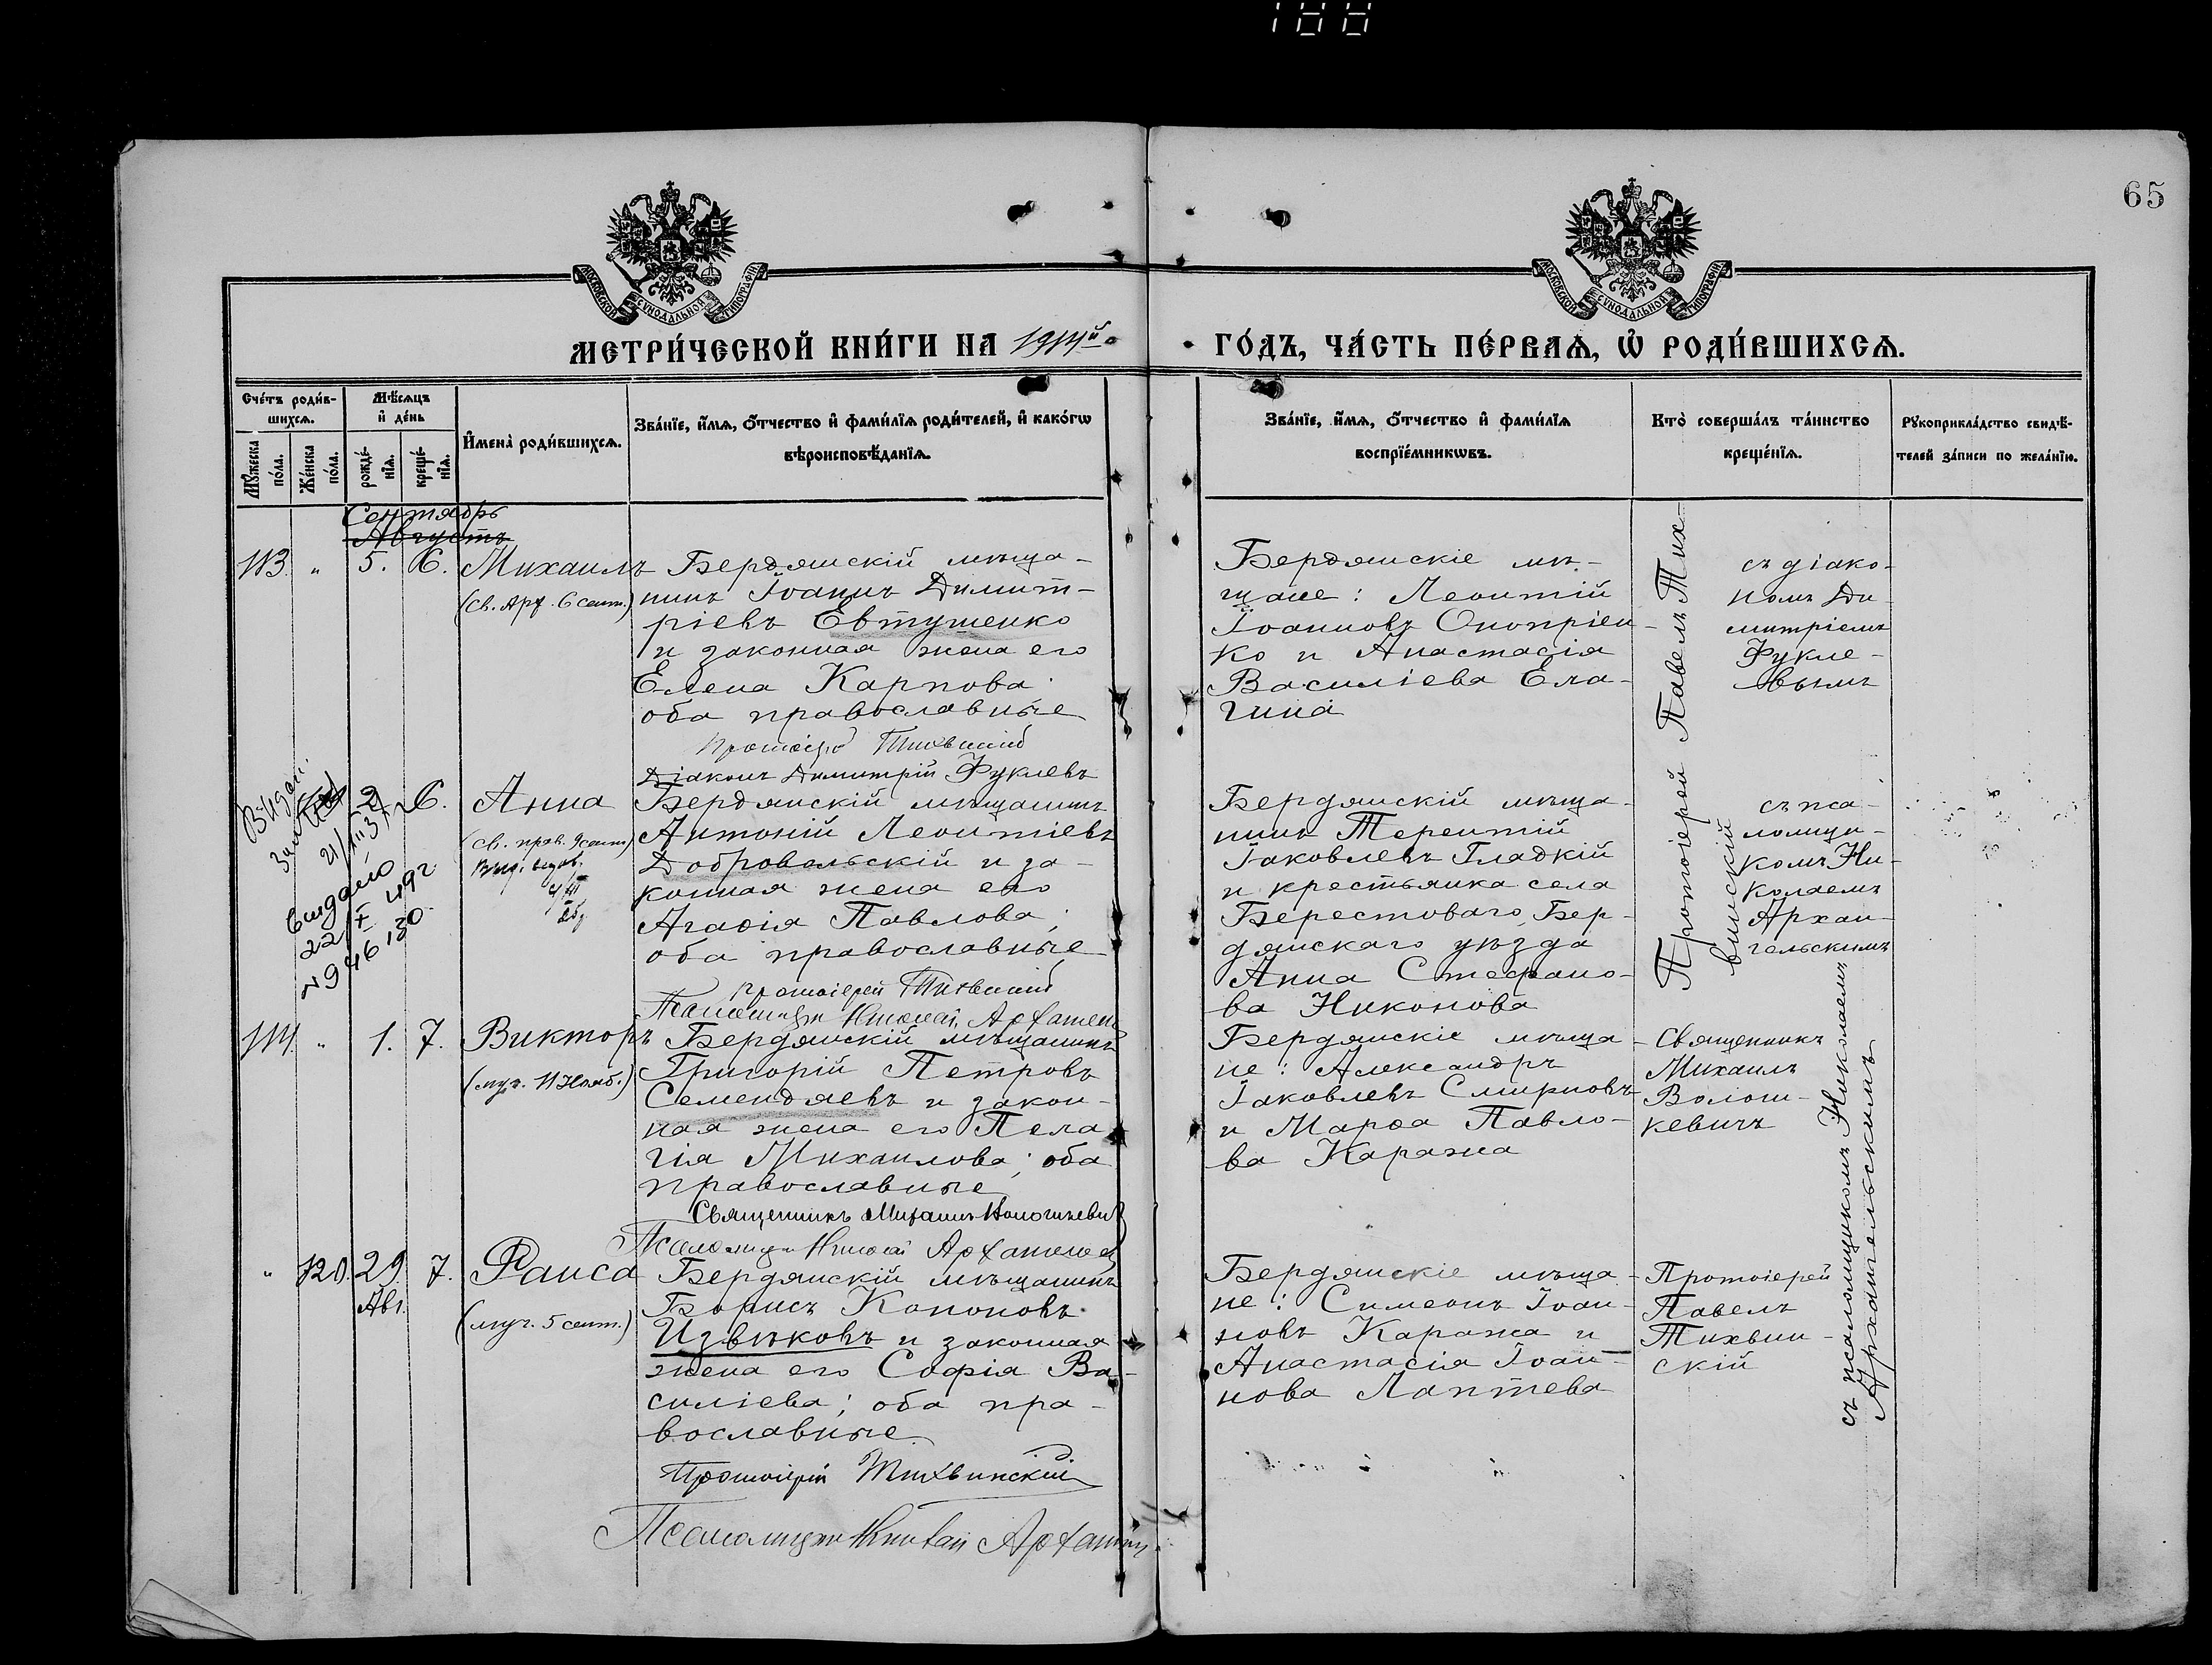 188
65
МОСКОВСКОЙ СУНОДАЛЬНОЙ ТИПОГРАФІИ
МОСКОВСКОЙ СУНОДАЛЬНОЙ ТИПОГРАФІИ
МЕТРИ́ЧЕСКОЙ КНИ́ГИ НА 1914й
ГО́ДЪ, ЧА́СТЬ ПЕ́РВАѦ, Ѡ҆ РОДИ́ВШИХСѦ.
Сче́тъ роди́в-
шихсѧ.
Мꙋ́жеска
по́ла.
Же́нска
по́ла.
Мѣ́сѧцъ
и҆ де́нь
рожде́-
нїѧ.
креще́-
нїѧ.
И҆мена̀ роди́вшихсѧ.
Зва́нїе, и҆́мѧ, ѻ҆́тчество и҆ фами́лїѧ роди́телей, и҆ како́гѡ
вѣроисповѣ́данїѧ.
Зва́нїе, и҆́мѧ, ѻ҆́тчество и҆ фами́лїѧ
воспрїе́мникѡвъ.
Кто̀ соверша́лъ та́инство
креще́нїѧ.
Рꙋкоприкла́дство свидѣ́-
телей за́писи по жела́нїю.
Сентябрь
Августъ
113. " 5. 6. Михаилъ
(св. Арх. 6 сент.)
Бердянскій мѣща-
нинъ Іоаннъ Димит-
ріевъ Евтушенко
и законная жена его
Елена Карпова
оба православные
Протоіерей Тихвинскій
Діаконъ Димитрій Фуклевъ
Бердянскіе мѣ-
щане: Леонтій
Іоанновъ Оноприен-
ко и Анастасія
Василіева Ела-
гина
Протоіерей Павелъ Тих-
винскій
съ діако-
номъ Ди-
митріемъ
Фукле-
вымъ
2 6. Анна
(св. прав. 9 сент.)
Выдано
22/X 49г
N 946130
Бердянскій мѣщанинъ
Антоній Леонтіевъ
Добровольскій и за-
конная жена его
Агаѳія Павлова;
оба православные
Протоіерей Тихвинскій
Псаломщикъ Николай Архангел
Бердянскій мѣща-
нинъ Терентій
Іаковлевъ Гладкій
и крестьянка села
Берестоваго, Бер-
дянскаго уѣзда
Анна Стефано-
ва Никонова
съ пса-
ломщи-
комъ Ни-
колаемъ
Архан-
гельскимъ
114. " 1. 7. Викторъ
(муч. 11 Нояб.)
Бердянскій мѣщанинъ
Григорій Петровъ
Семендяевъ и закон-
ная жена его Пела-
гія Михаилова; оба
православные
Священникъ Михаилъ Волошкевичъ
Псаломщикъ Николай Архангел
Бердянскіе мѣща-
не: Александръ
Іаковлевъ Смирновъ
и Марѳа Павло-
ва Каража
Священникъ
Михаилъ
Волош-
кевичъ
съ псаломщикомъ Николаемъ
Архангельскимъ
" 120. 29. 7. Раиса
Авг.
(муч. 5 сент.)
Бердянскій мѣщанинъ
Борисъ Кононовъ
Извѣковъ и законная
жена его Софія Ва-
силіева; оба пра-
вославные
Протоіерей Тихвинскій
Псаломщикъ Николай Архангел
Бердянскіе мѣща-
не: Симеонъ Іоан-
новъ Каража и
Анастасія Іоан-
нова Лаптева
Протоіерей
Павелъ
Тихвин-
скій